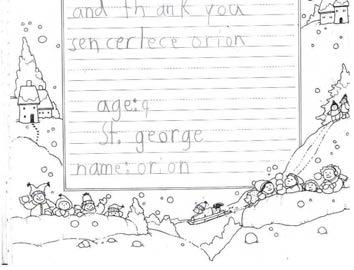 and thank you
sencertece orion
age: 9
St. george
name: orion